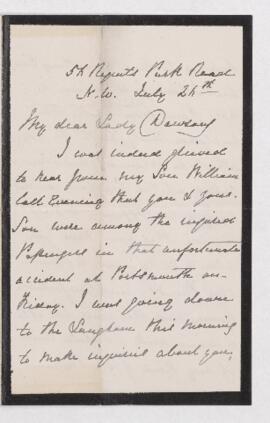 54 Regents Park Road
N.W. July 24th
My dear Lady Dawson
I was indeed grieved
to hear from my Son William
last Evening that you & your
Son were among the injured
Passengers in that unfortunate
accident at Portsmouth on
Friday. I was going down
to the Langham this morning
to make inquiries about you,